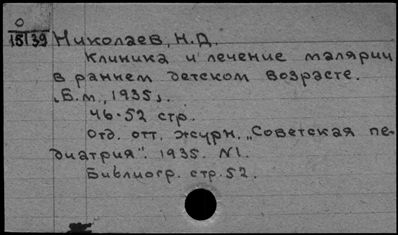 О
15139 Николаев, Н.Д.
Клиника и лечение малярии
в раннем детском возрасте.
[Б.м., 1935].
46-52 стр.
Отд. отт. журн. „Советская пе-
диатрия". 1935. N1.
Библиогр. стр. 52.